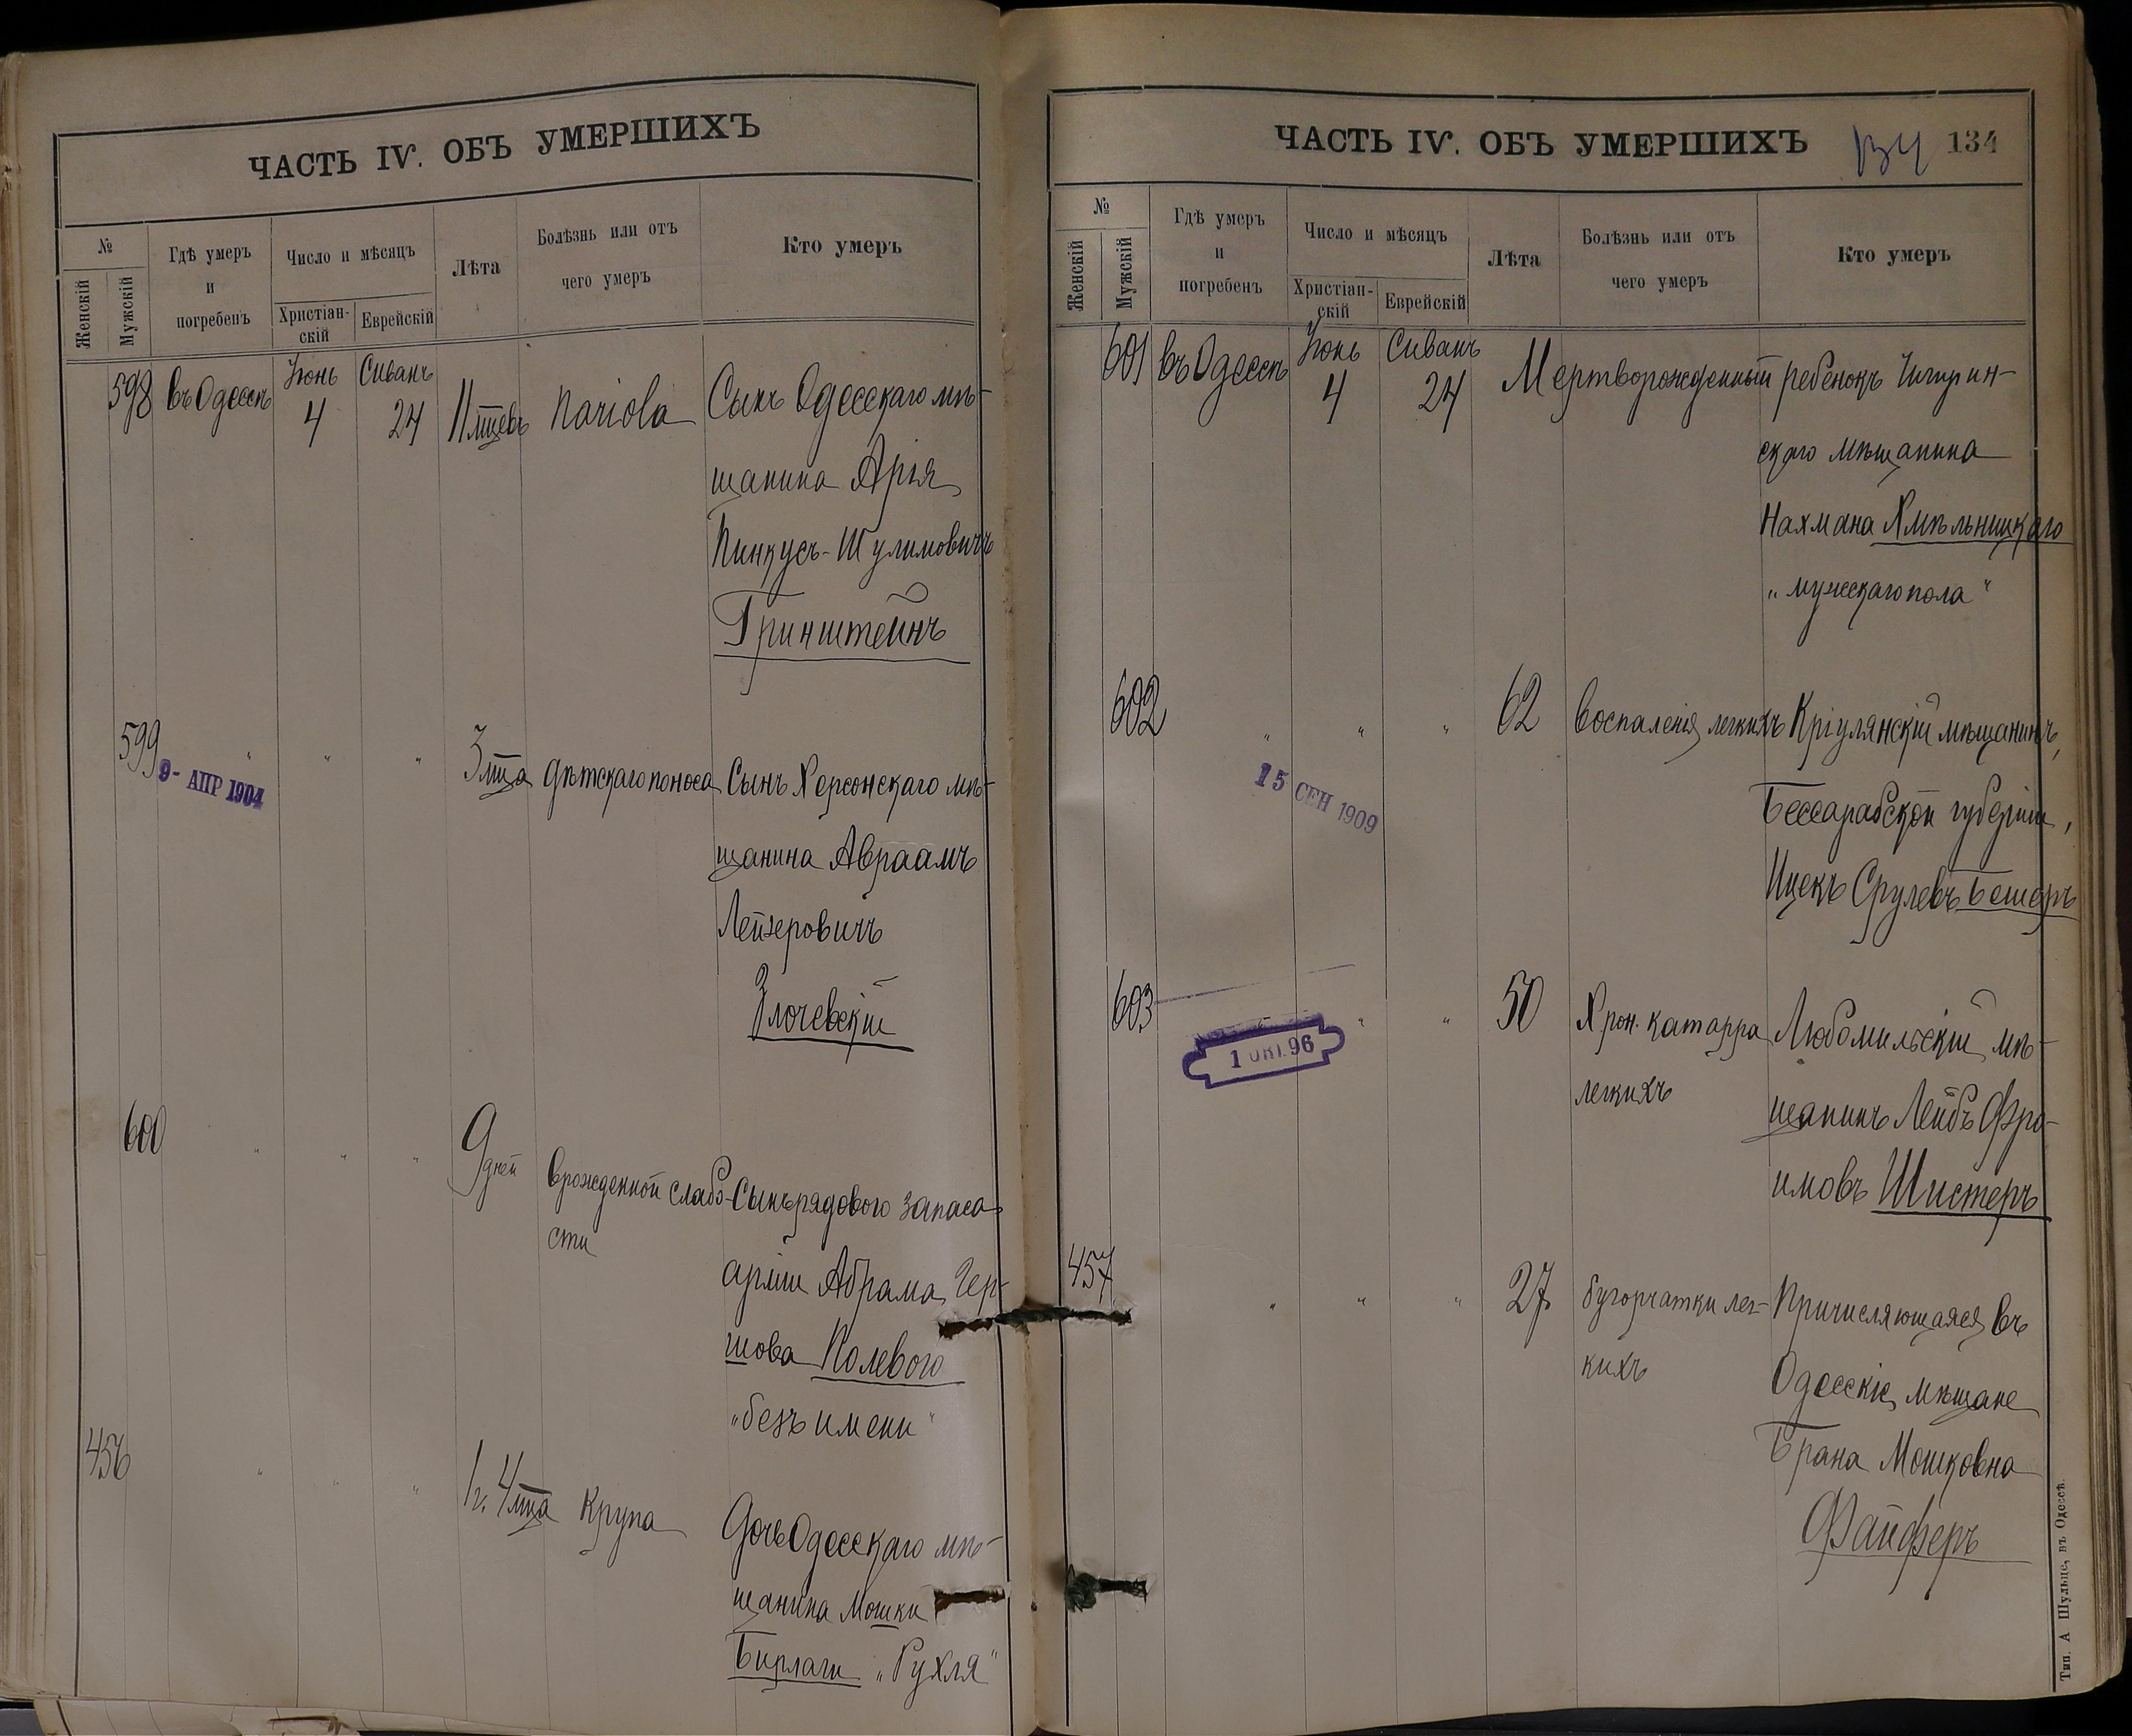 ЧАСТЬ IV. ОБЪ УМЕРШИХЪ
№
Женскій
Мужскій
Гдѣ умеръ
и
погребенъ
Число и мѣсяцъ
Христіан-
скій
Еврейскій
Лѣта
Болѣзнь или отъ
чего умеръ
Кто умеръ
598 въ Одессѣ Іюнь 4 Сиванъ 24 11 мцевъ Сынъ Одесскаго мѣ-
щанина Арія
Пинкусъ-Шулимовичъ
Гринштейнъ
599 " " " 3 мца дѣтскаго поноса Сынъ Херсонскаго мѣ-
9- АПР 1904
щанина Авраамъ
Лейзеровичъ
Злочевскій
600 " " " 9 дней врожденной слабо- Сынъ рядового запаса
сти
арміи Абрама Гер-
шова Полевого
"безъ имени"
456 " " " 1 г. 4 мца Крупа Дочь Одесскаго мѣ-
щанина Мошки
Бирлаги "Рухля"
ЧАСТЬ IV. ОБЪ УМЕРШИХЪ 134 134
№
Женскій
Мужскій
Гдѣ умеръ
и
погребенъ
Число и мѣсяцъ
Христіан-
скій
Еврейскій
Лѣта
Болѣзнь или отъ
чего умеръ
Кто умеръ
601 въ Одессѣ Іюнь 4 Сиванъ 24 Мертворожденный ребенокъ Чигирин-
скаго мѣщанина
Нахмана Хмѣльницкаго
"мужскаго пола"
602 " " " 62 воспаленія легкихъ Кріулянскій мѣщанинъ,
15 СЕН 1909
Бессарабской губерніи,
Ицекъ Срулевъ
603 " " " 50 Хрон. катарра Любомильскій мѣ-
1 ОКТ. 96
легкихъ
щанинъ Лейбъ Фро-
имовъ Шистеръ
457 " " " 27 бугорчатки лег- Причисляющаяся въ
кихъ
Одесскіе мѣщане
Брана Мошковна
Файферъ
Тип. А Шульце, въ Одессѣ.